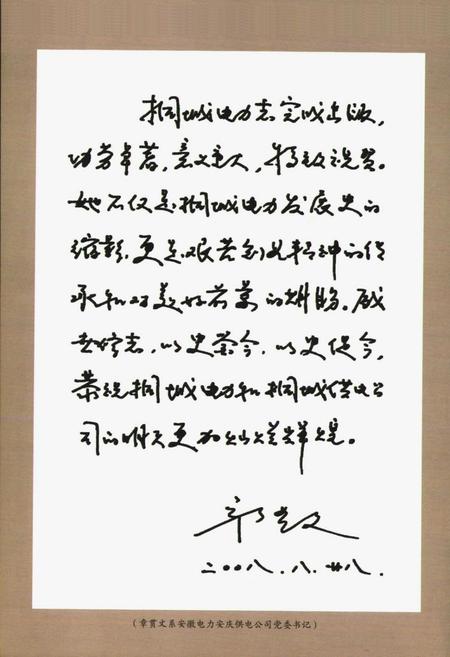 桐城电力志完成出版,
功劳卓著,意义重大,特致祝贺。
她不仅是桐城电力发展史的
缩影,更是艰苦创业精神的传
承和对美好前景的期盼。盛
世修志,以史鉴今,以史促今,
恭祝桐城电力和桐城供电公
司的明天更加灿烂辉煌。
章贯文
二〇〇八.八.廿八.
(章贯文系安徽电力安庆供电公司党委书记)